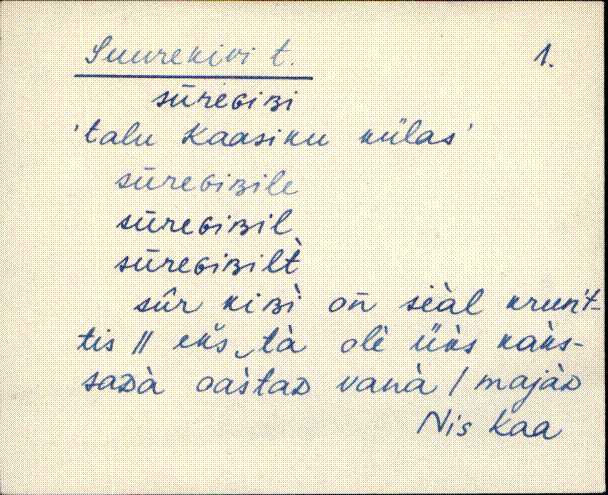 Suurekivi t. 1.
sūreɢiʙi
'talu Kaasiku külas'
sūreɢiʙile
sūreɢiʙil
sūreɢiʙilt̀
sûr kiʙì oñ sèàl krunt̀-
tis || eks‿tà olè üks kaks-
saᴅà oàstaᴅ vanà / majàᴅ
Nis Kaa